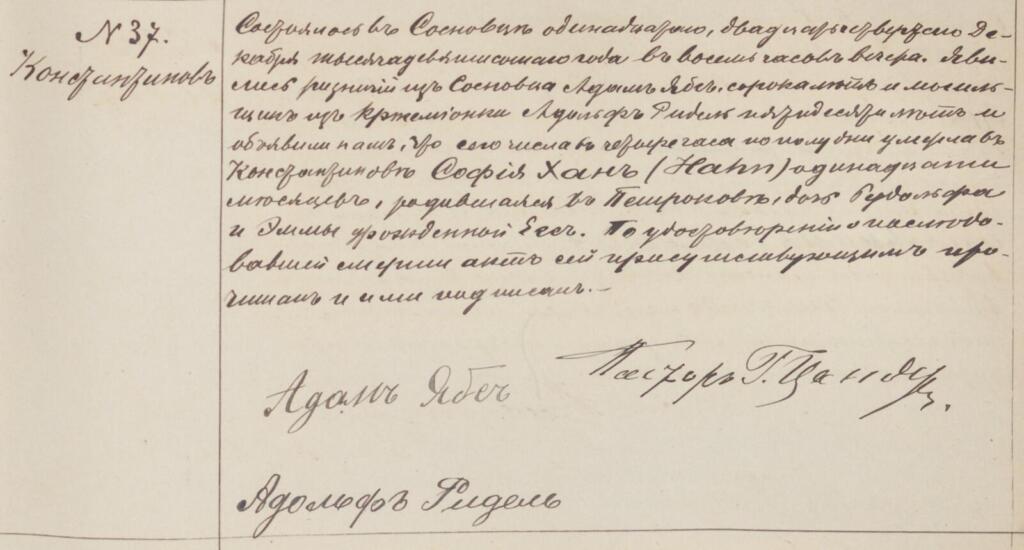 N 37.
Константиновъ
Состоялось въ Сосновицѣ одинадцатаго, двадцать четвертаго Де-
кабря тысяча девятисотаго года въ восемь часовъ вечера. Яви-
лись ризничій изъ Сосновца Адамъ Ябсъ, сорока лѣтъ и могиль-
щикъ изъ Кржеміонки Адольфъ Ридель пятидесяти лѣтъ и
объявили намъ, что сего числа въ четыре часа по полудни умерла въ
Константиновѣ Софія Ханъ (Hahn) одинадцати
мѣсяцевъ, родившаяся въ Петроковѣ, дочь Рудольфа
и Эммы урожденной Ессъ. По удостовѣреніи о послѣдо-
вавшей смерти актъ сей присутствующимъ про-
читанъ и ими подписанъ.-
Адамъ Ябсъ
Пасторъ Г. Цандеръ.
Адольфъ Ридель